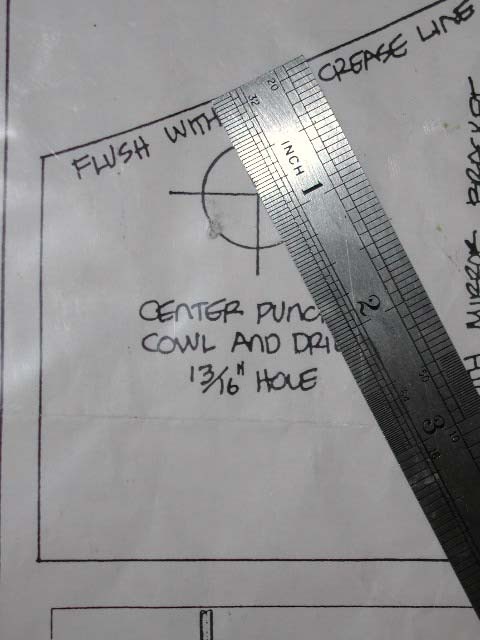 FLUSH WITH CREASE LINE
CENTER PUNC
COWL AND DRI
13/16" HOLE
MIRROR BRACKET
INCH
1
2
3
32
20